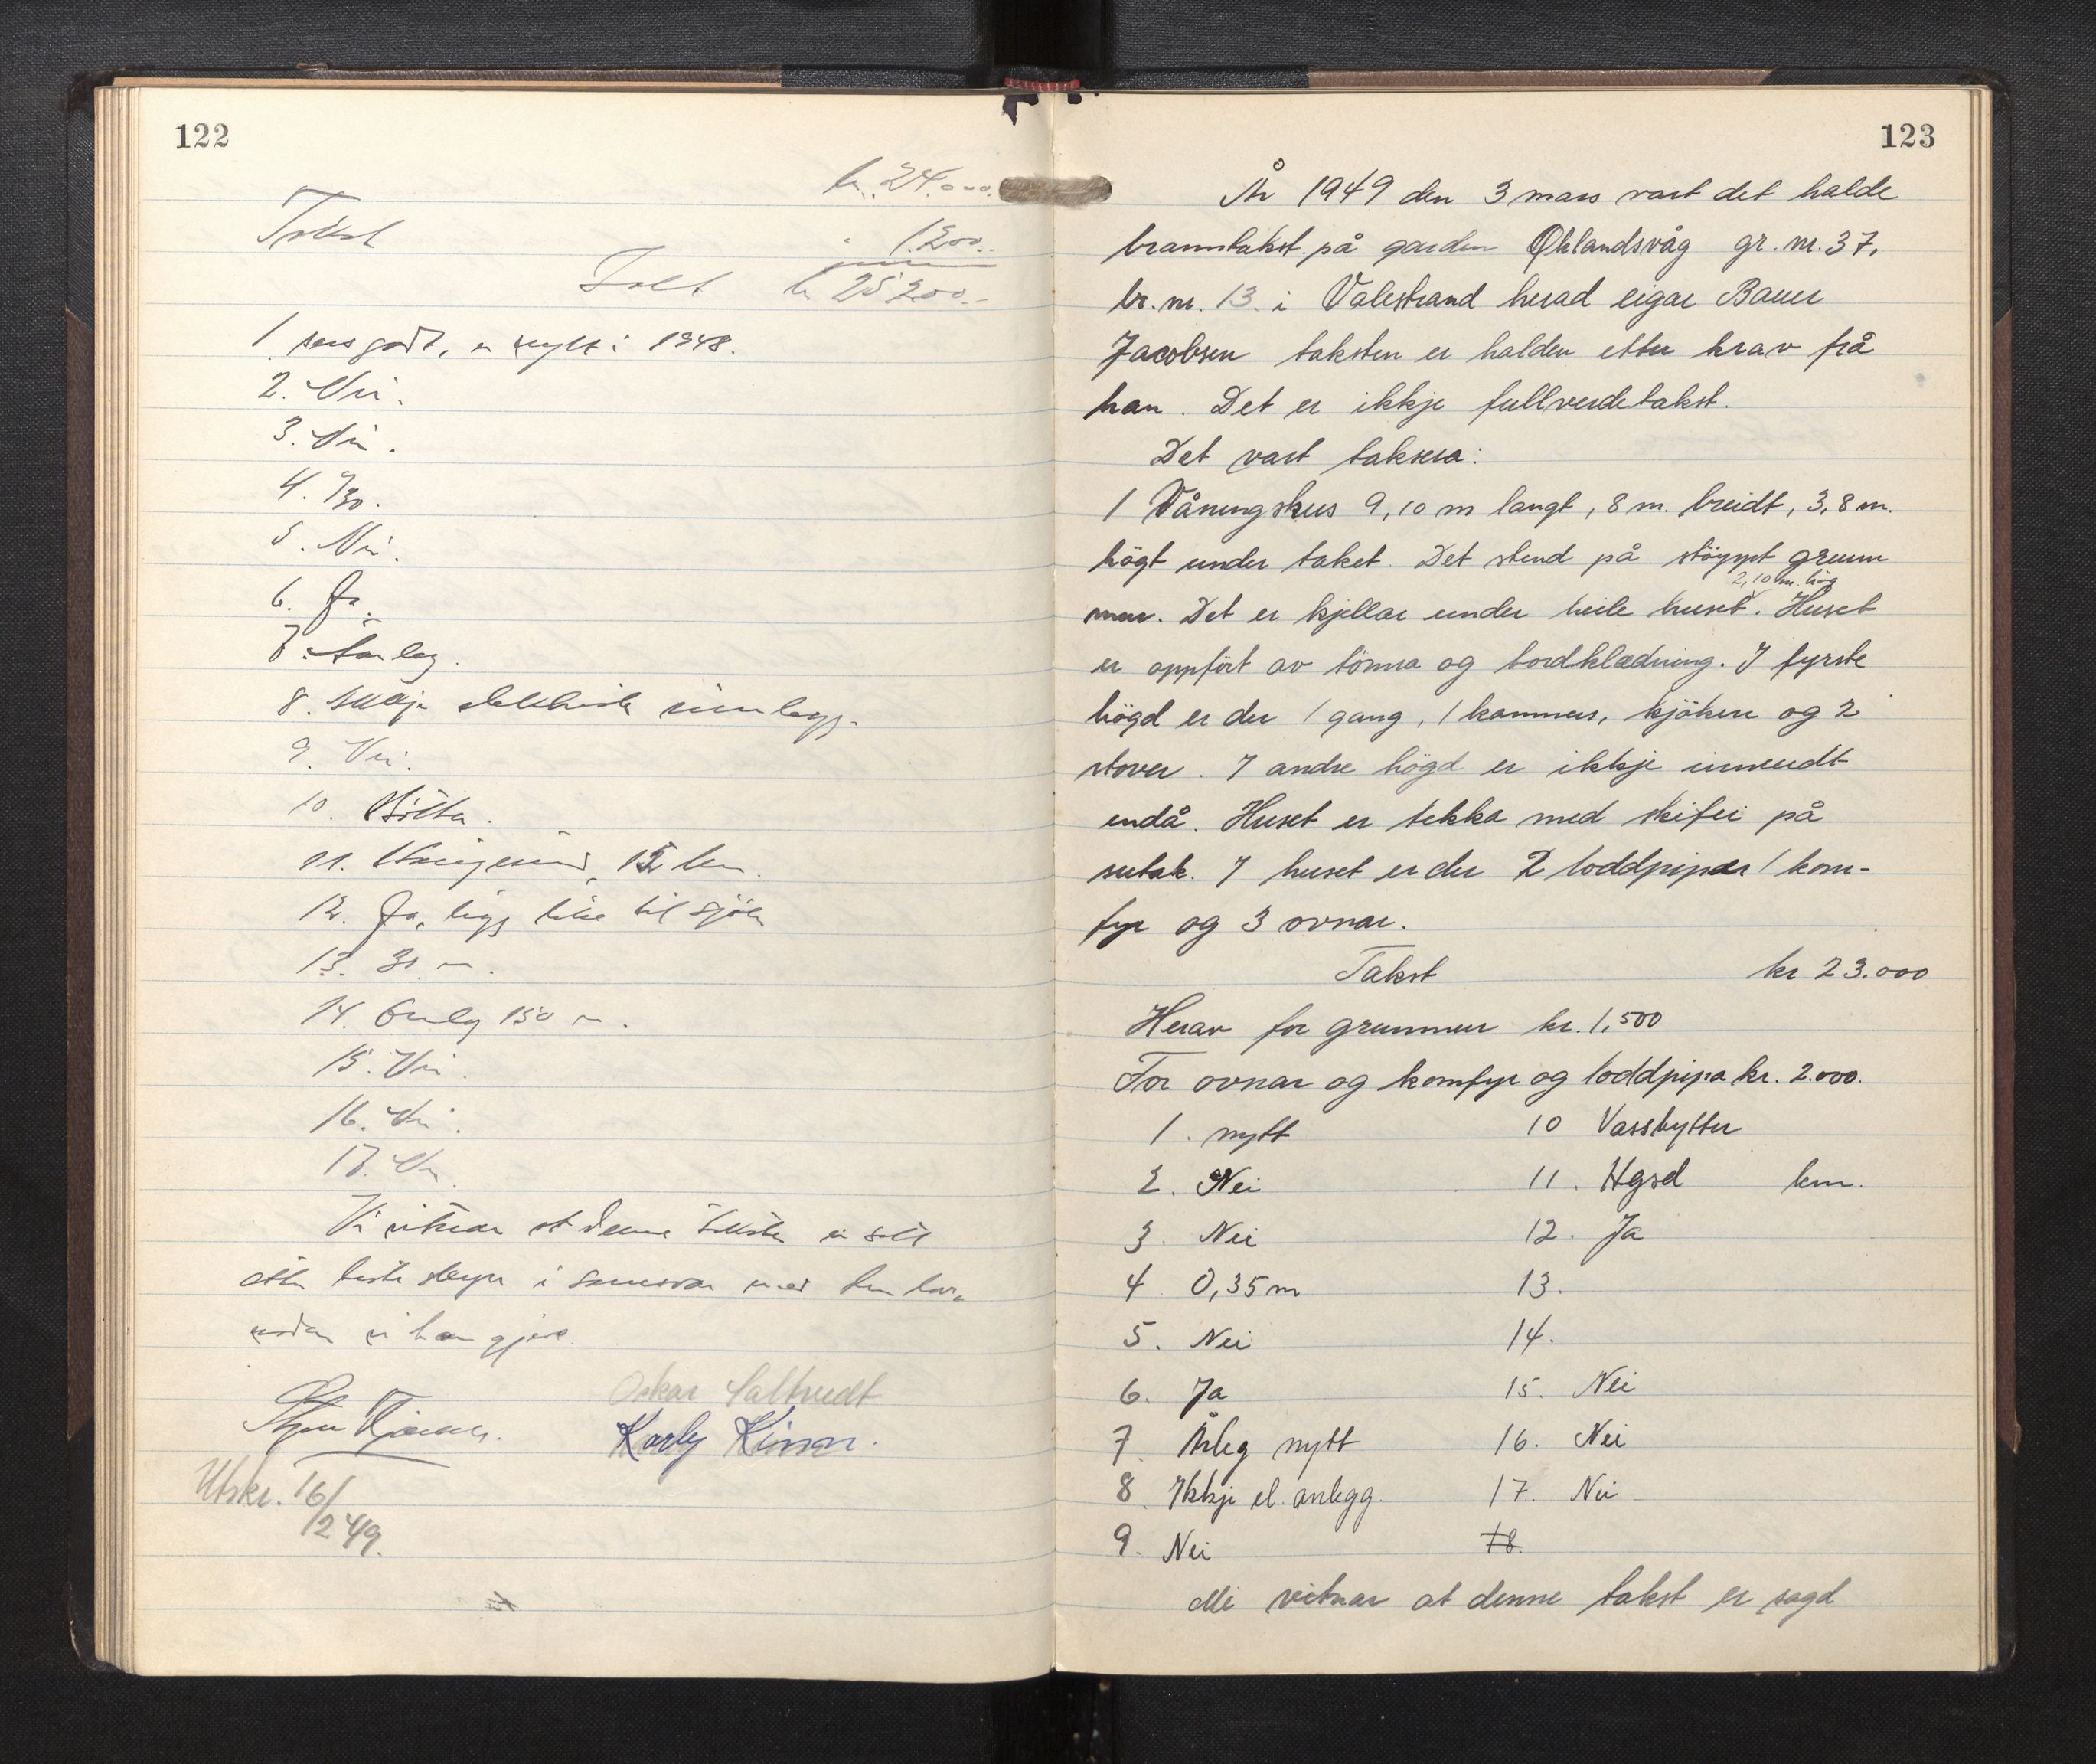 122
kr. 24.000.
Takst " 1200.-
Talt kr 25 200.-
1. sers godt, er nytt i 1948.
2. Nei.
3. Nei.
4. 9/30.
5. Nei.
6. Ja.
7. Årleg.
8. Ikkje elektrisk innlegg.
9. Nei.
10. Bøtter.
11. Haugesund, 12 km.
12. Ja, ligg like til sjøen
13. 30 m.
14. 150 m.
15. Nei.
16. Nei.
17. Nei.
Vi vitnar at denne taksten er sett
etter beste skjøn i samsvar med den lov-
nadan vi har gjeve.
Oskar Saltvedt
Karly Kinn.
Utskr. 16/
12 49.
123
År 1949 den 3 mars vart det halde
branntakst på garden Øklandsvåg gr. nr. 37,
br. nr. 13 i Valestrand herad eigar Bauer
Jacobsen taksten er halden etter krav frå
han. Det er ikkje fullverdetakst.
Det vart taksera:
1 Våningshus 9,10 m langt, 8 m. breidt, 3,8 m.
högt under taket. Det stend på stöypt grunn
2,10 m. hög
mur. Det er kjellar under heile huset. Huset
er oppfört av tömra og bordklædning. I fyrste
högd er der 1 gang, 1 kammers, kjöken og 2
stover. I andre högd er ikkje innreidt
endå. Huset er tekka med skifer på
sutak. I huset er der 2 loddpipar 1 kom-
fyr og 3 ovnar.
Takst kr 23.000
Herav for grunnmur kr. 1.500
For ovnar og komfyr og loddpipa kr. 2.000.
1. nytt 10 Vassbytter
2. Nei 11. Hgsd km.
3. Nei 12. Ja
4 0,35 m 13.
5. Nei 14.
6. Ja 15. Nei
7. Årleg nytt 16. Nei
8. Ikkje el. anlegg. 17. Nei
9. Nei 18.
Me vitnar at denne takst er sagd